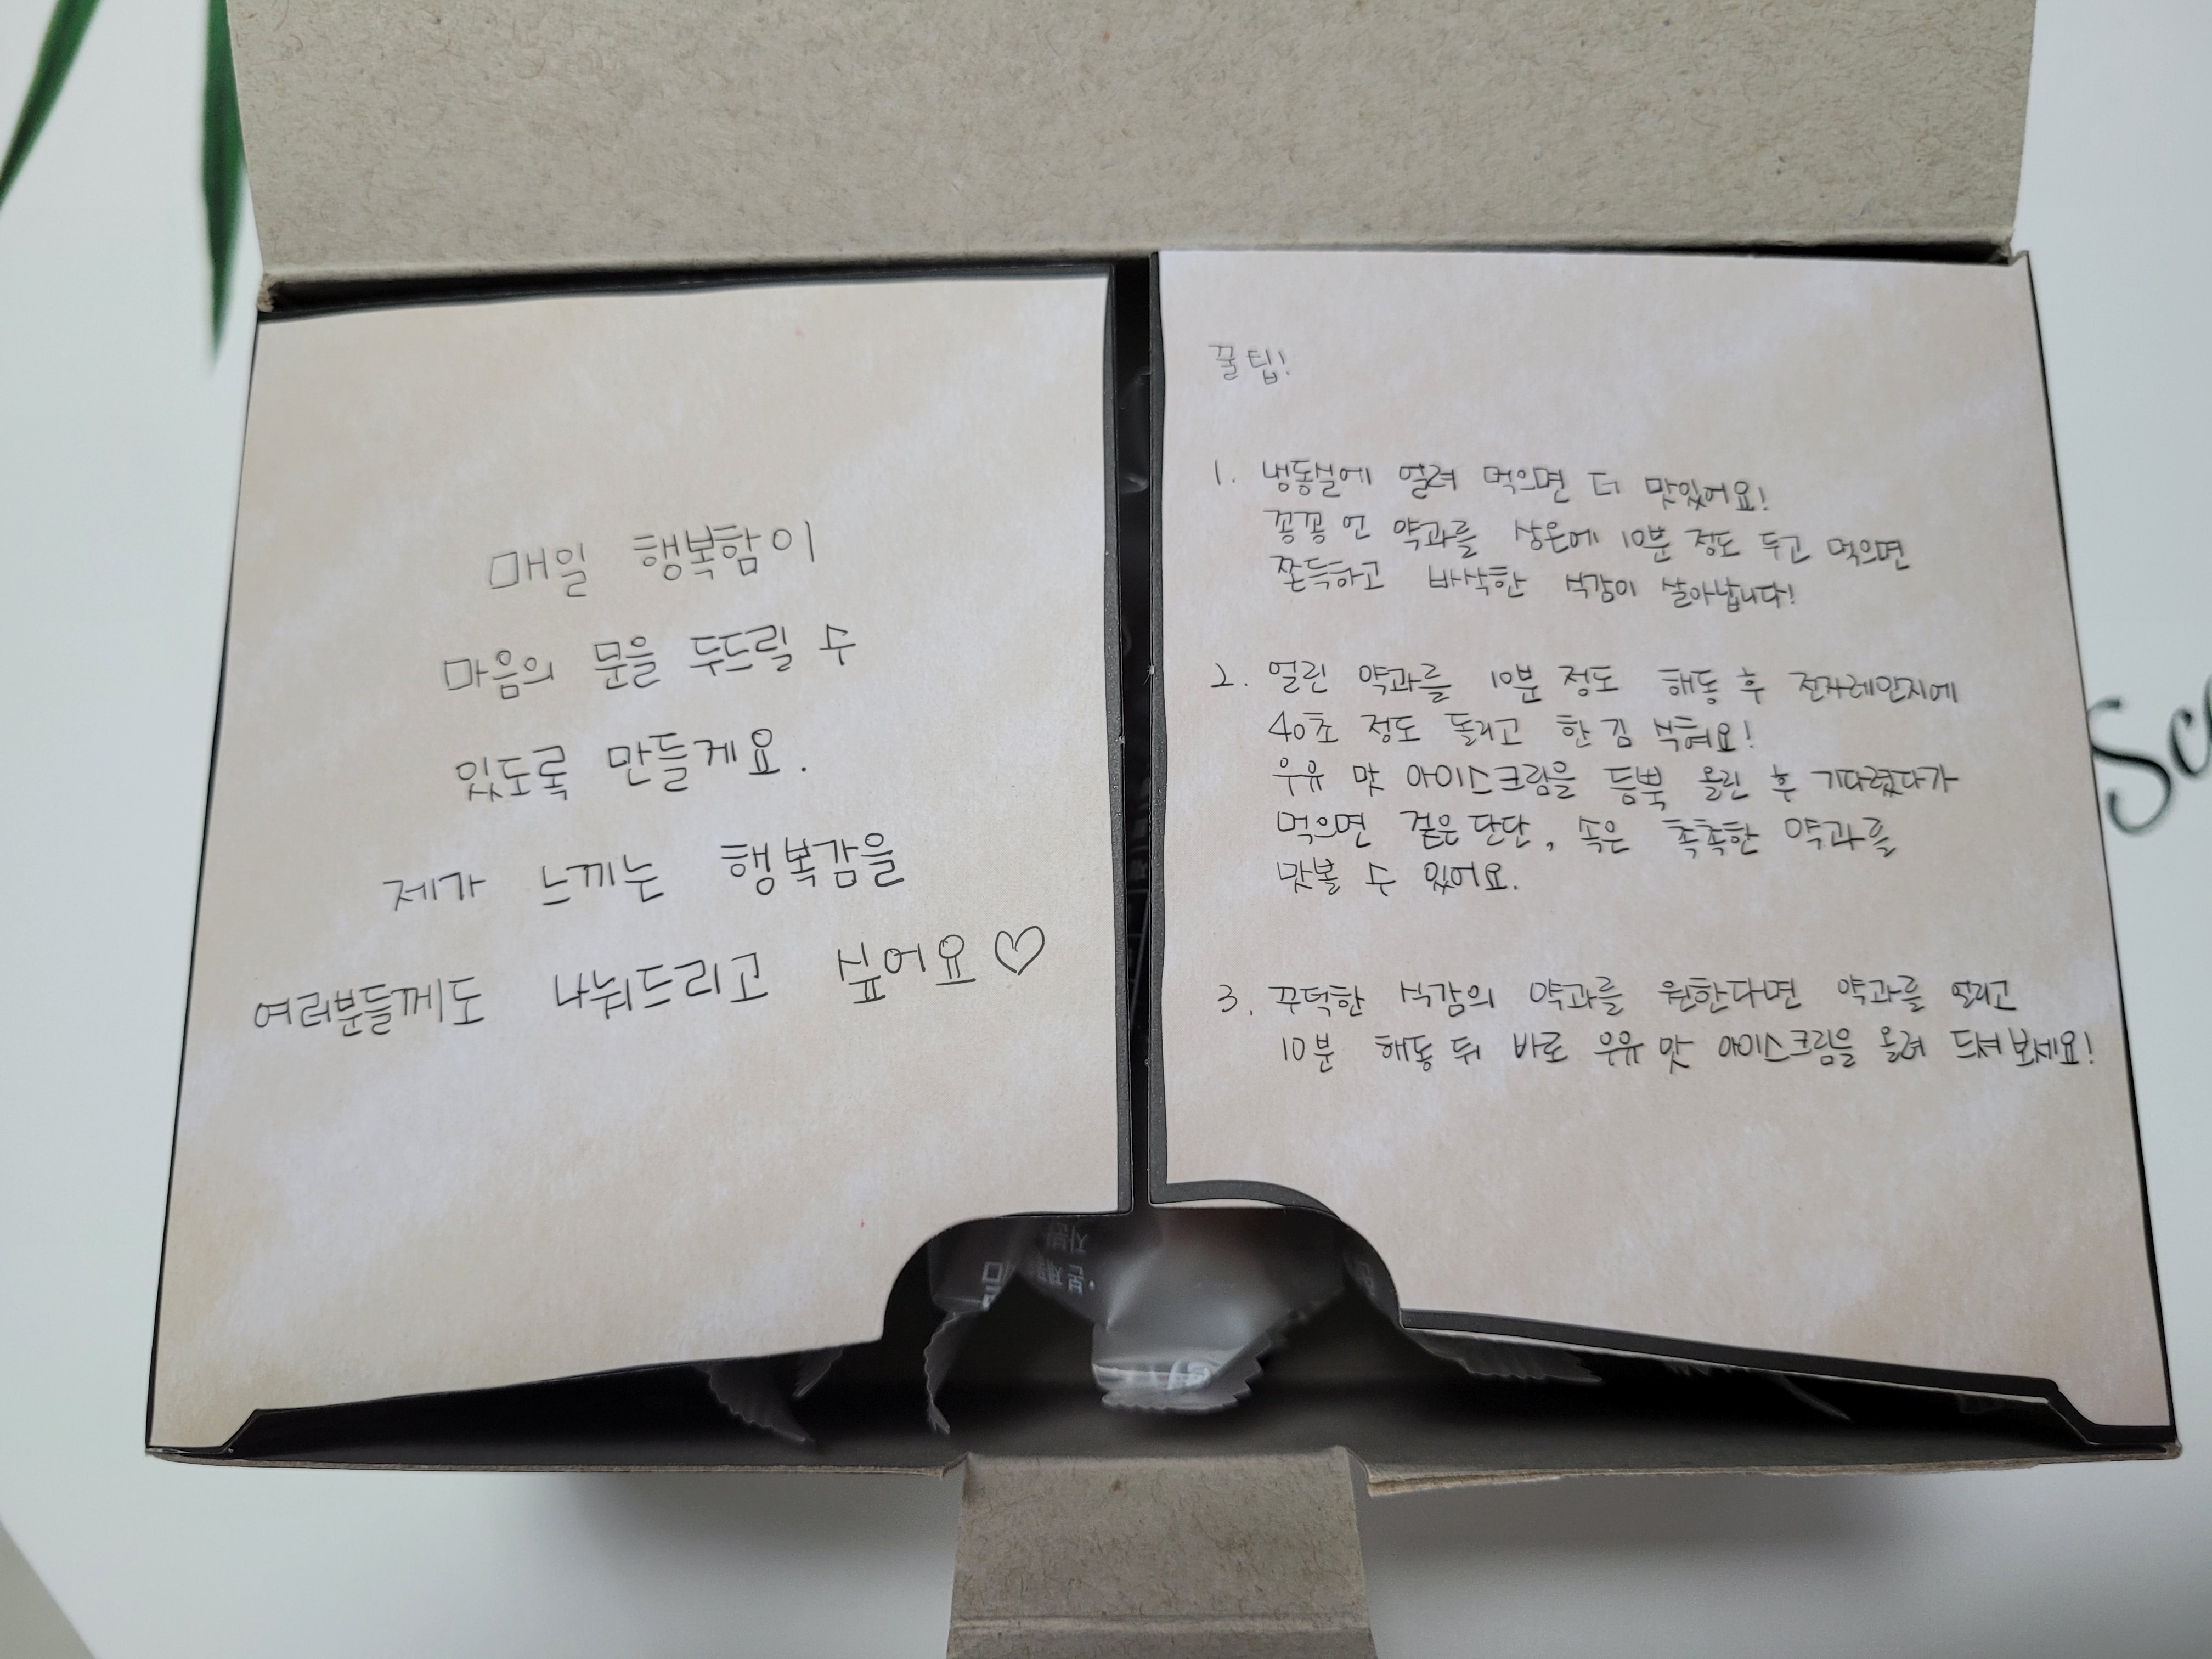 매일 행복함이
마음의 문을 두드릴 수
있도록 만들게요.
제가 느끼는 행복감을
여러분들께도 나눠드리고 싶어요♡
꿀팁!
1. 냉동실에 얼려 먹으면 더 맛있어요!
꽁꽁 언 약과를 상온에 10분 정도 두고 먹으면
쫀득하고 바삭한 식감이 살아납니다!
2. 얼린 약과를 10분 정도 해동 후 전자레인지에
40초 정도 돌리고 한 김 식혀요!
우유 맛 아이스크림을 듬뿍 올린 후 기다렸다가
먹으면 겉은 단단, 속은 촉촉한 약과를
맛볼 수 있어요.
3. 꾸덕한 식감의 약과를 원한다면 약과를 얼리고
10분 해동 뒤 바로 우유 맛 아이스크림을 올려 드셔 보세요!